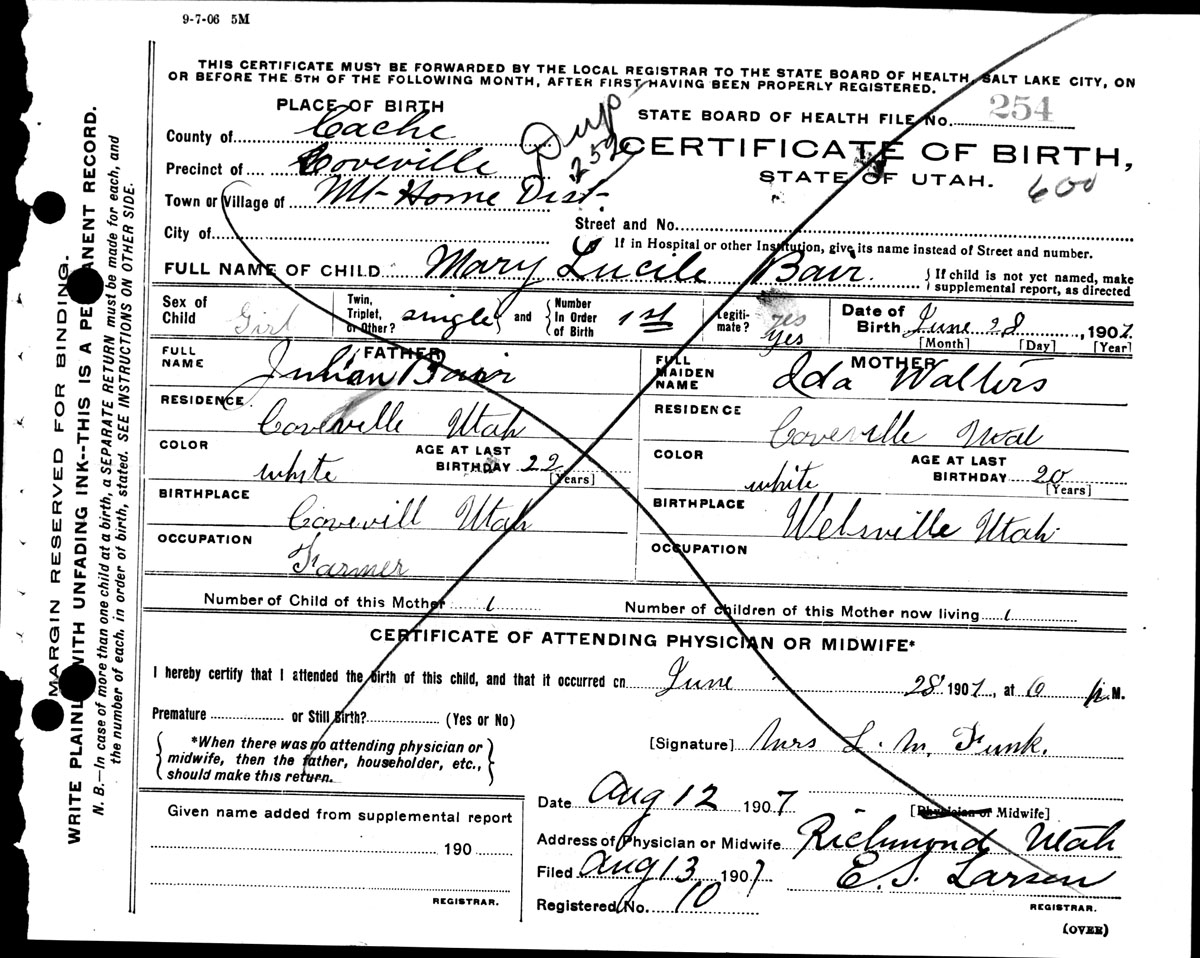 9-7-06 5M
THIS CERTIFICATE MUST BE FORWARDED BY THE LOCAL REGISTRAR TO THE STATE BOARD OF HEALTH, SALT LAKE CITY, ON
OR BEFORE THE 5TH OF THE FOLLOWING MONTH, AFTER FIRST HAVING BEEN PROPERLY REGISTERED.
PLACE OF BIRTH
STATE BOARD OF HEALTH FILE No. 254
County of Cache
Dup
Precinct of Coveville
CERTIFICATE OF BIRTH,
STATE OF UTAH. 600
Town or Village of Mt-Home Dist.
Street and No.
City of
If in Hospital or other Institution, give its name instead of Street and number.
FULL NAME OF CHILD Mary Lucile Bair. {If child is not yet named, make supplemental report, as directed
Sex of Child Girl Twin, Triplet, or Other? single and Number In Order of Birth 1st Legiti-mate? yes yes Date of Birth June 28, 1907
[Month] [Day] [Year]
FATHER MOTHER
FULL NAME Julian Bair FULL MAIDEN NAME Ida Walters
RESIDENCE Coveville Utah RESIDENCE Coveville Utah
COLOR white AGE AT LAST BIRTHDAY 22 [Years] COLOR white AGE AT LAST BIRTHDAY 20 [Years]
BIRTHPLACE Covevill Utah BIRTHPLACE Welsville Utah
OCCUPATION Farmer OCCUPATION
Number of Child of this Mother 1 Number of children of this Mother now living 1
CERTIFICATE OF ATTENDING PHYSICIAN OR MIDWIFE*
I hereby certify that I attended the birth of this child, and that it occurred on June 28 1907, at 6 p M.
Premature or Still Birth? (Yes or No)
{*When there was no attending physician or
midwife, then the father, householder, etc.,
should make this return.}
[Signature] Mrs L. M. Funk.
[Physician or Midwife]
Date Aug 12 1907
Address of Physician or Midwife Richmond Utah
Filed Aug 13 1907 E. S. Larsen
Registered No. 10 REGISTRAR.
Given name added from supplemental report
190
REGISTRAR.
(OVER)
MARGIN RESERVED FOR BINDING.
WRITE PLAINLY WITH UNFADING INK--THIS IS A PERMANENT RECORD.
N. B.—In case of more than one child at a birth, a SEPARATE RETURN must be made for each, and
the number of each, in order of birth, stated. SEE INSTRUCTIONS ON OTHER SIDE.